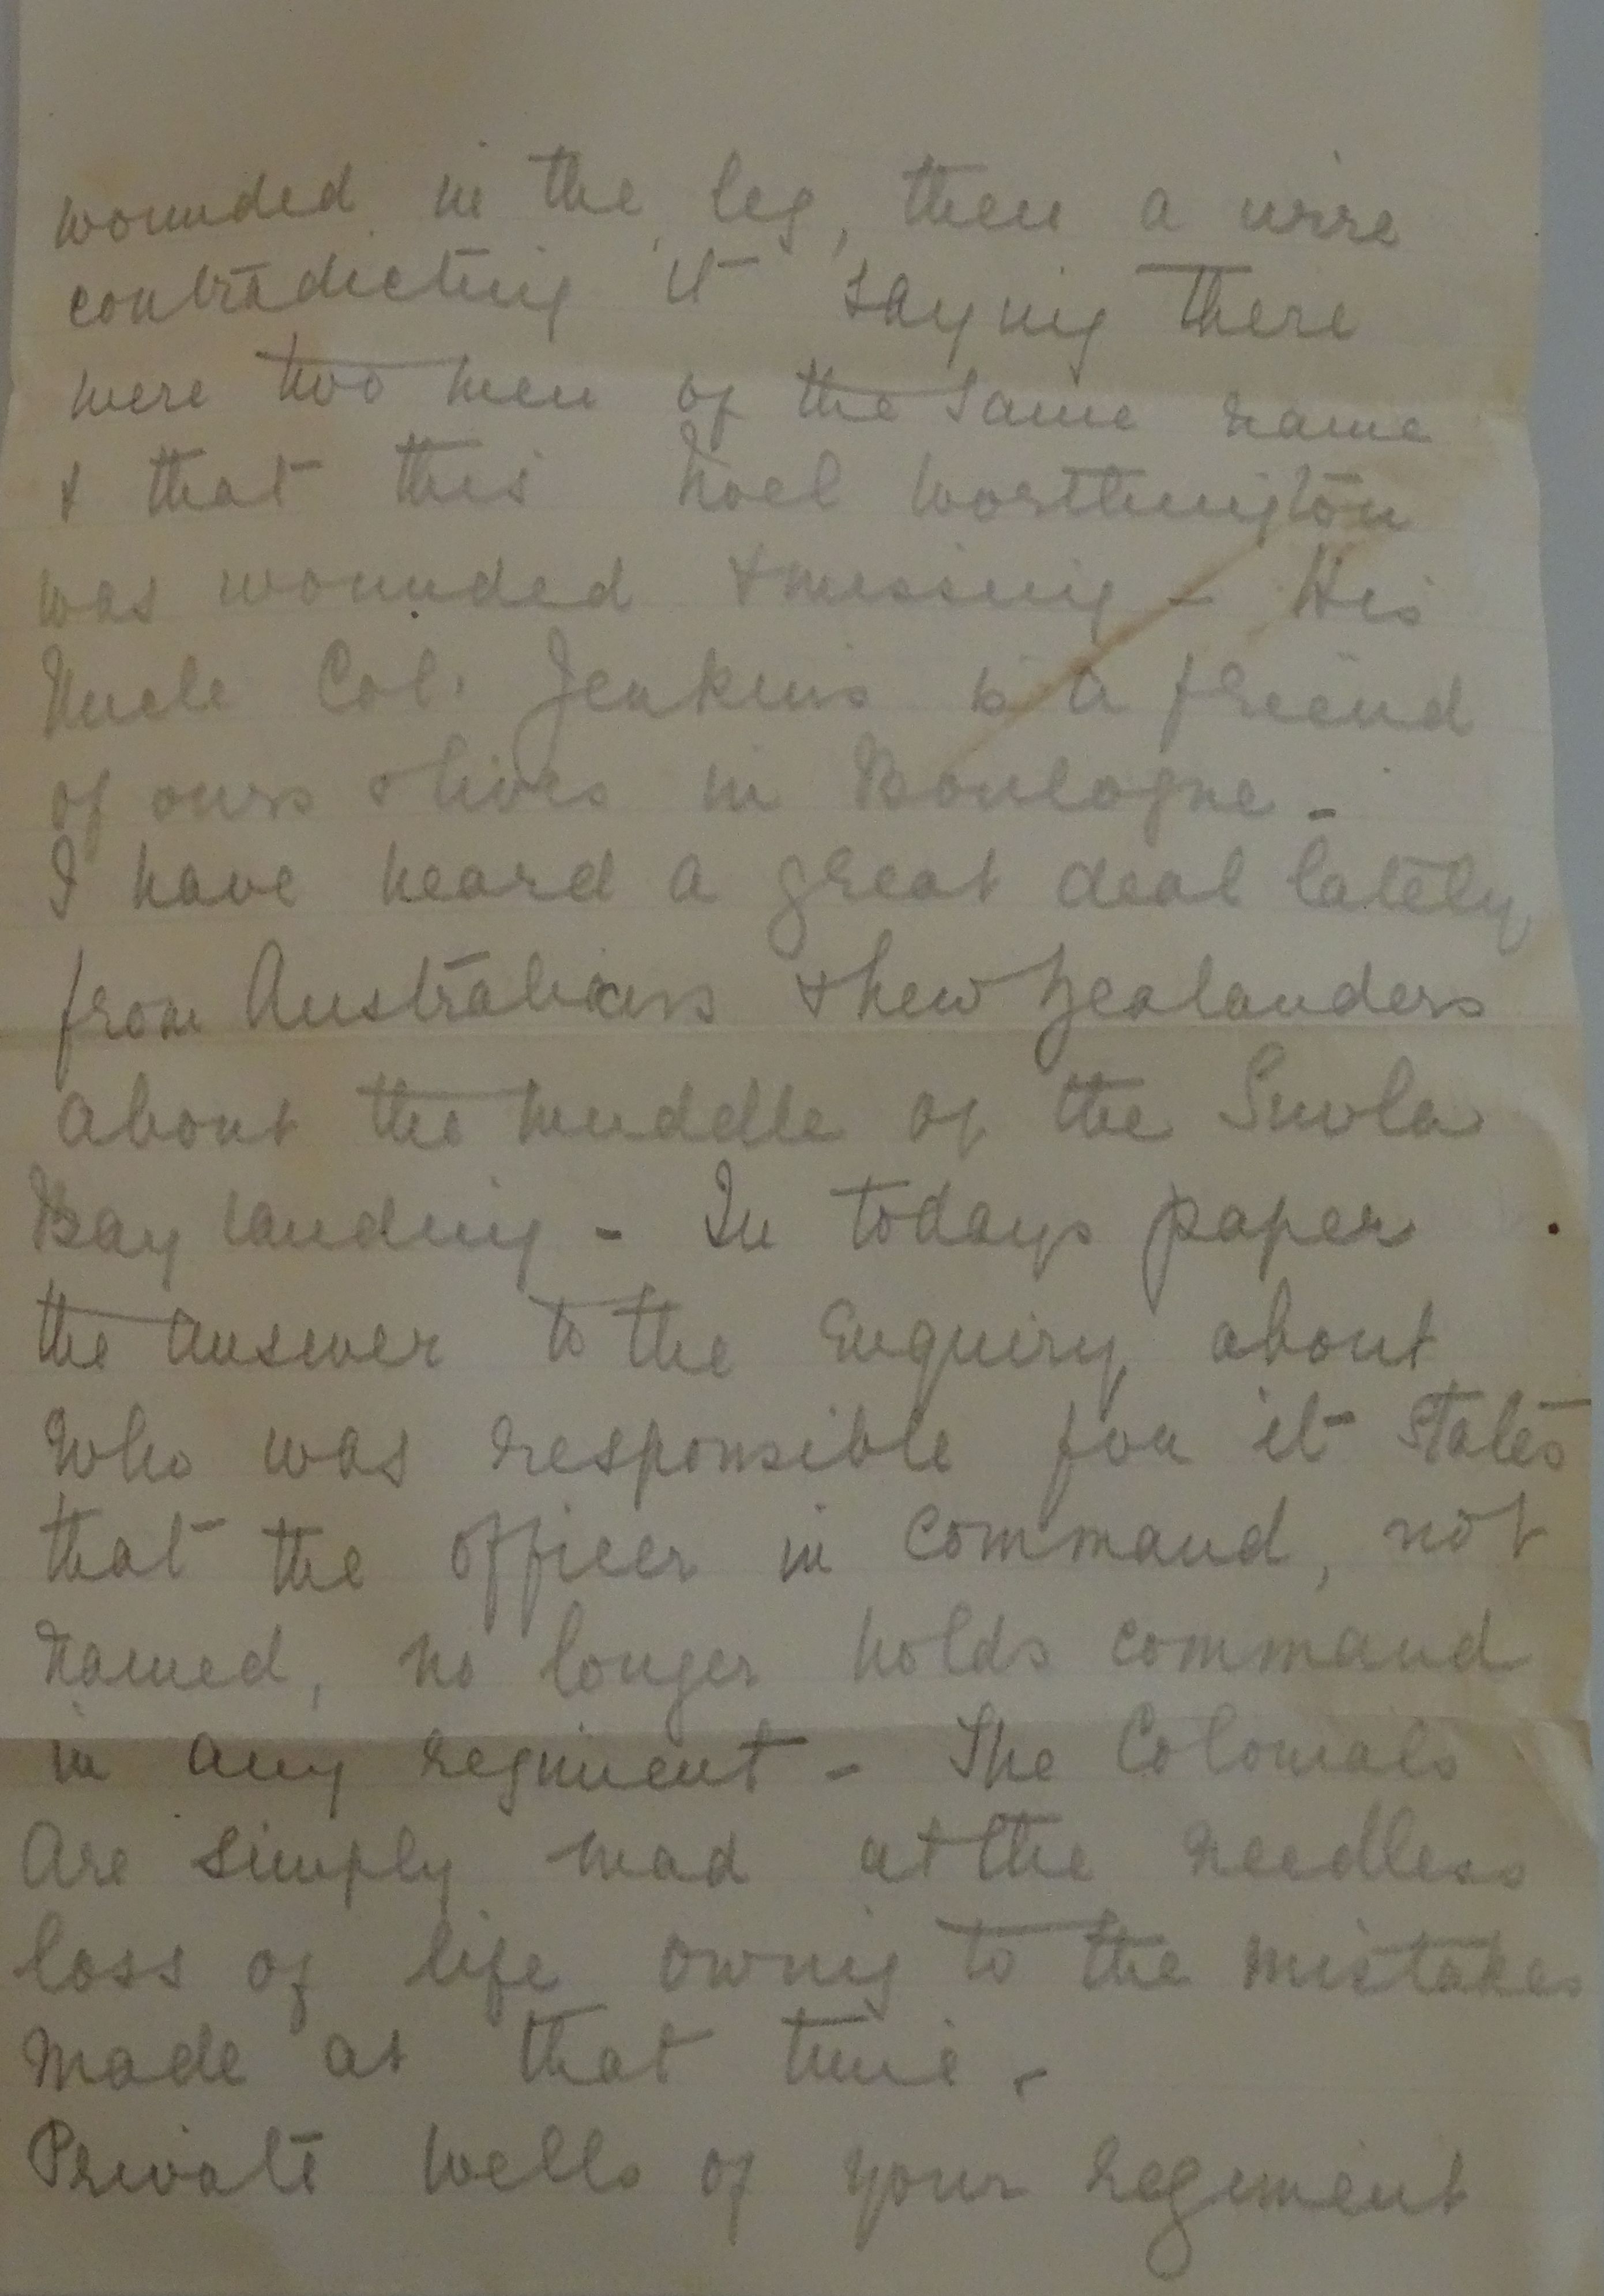 wounded in the leg, then a wire
contradicting it saying there
were two men of the same name
& that this Noel Worthington
was wounded & missing - His
Uncle Col. Jenkins is a friend
of ours & lives in Boulogne -
I have heard a great deal lately
from Australians & New Zealanders
about the muddle of the Suvla
Bay landing - In todays paper
the answer to the Enquiry about
who was responsible for it states
that the officer in command, not
named, no longer holds command
in any regiment - The Colonials
are simply mad at the needless
loss of life owing to the mistakes
made at that time -
Private Wells of your regiment